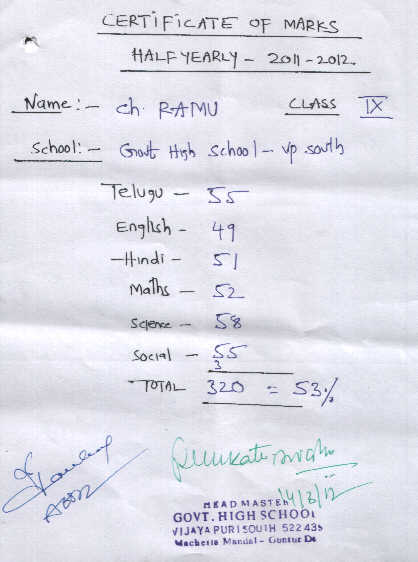 CERTIFICATE OF MARKS
HALF YEARLY - 2011-2012.
Name :- Ch. RAMU CLASS IX
School :- Govt High School - vp south
Telugu - 55
English - 49
Hindi - 51
Maths - 52
Science - 58
Social - 55
3
TOTAL 320 = 53%
14/3/12
HEAD MASTER
GOVT. HIGH SCHOOL
VIJAYA PURI SOUTH 522 435
Macherla Mandal - Guntur Dt